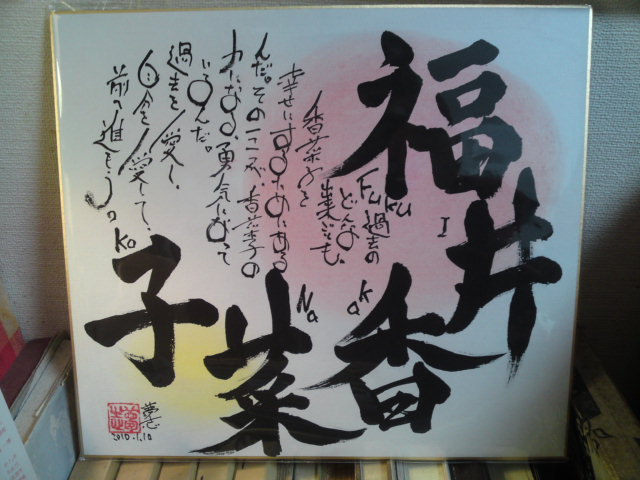 福井
香菜子
Fuku
I
Ka
Na
Ko
過去の
どんな
事でも、
香菜子を
幸せにするためにある
んだ。そのこころが、香菜子の
力になる。勇気になって
いるんだ。
過去を愛し、
自分を愛して、
前へ進もう。
2010.1.10